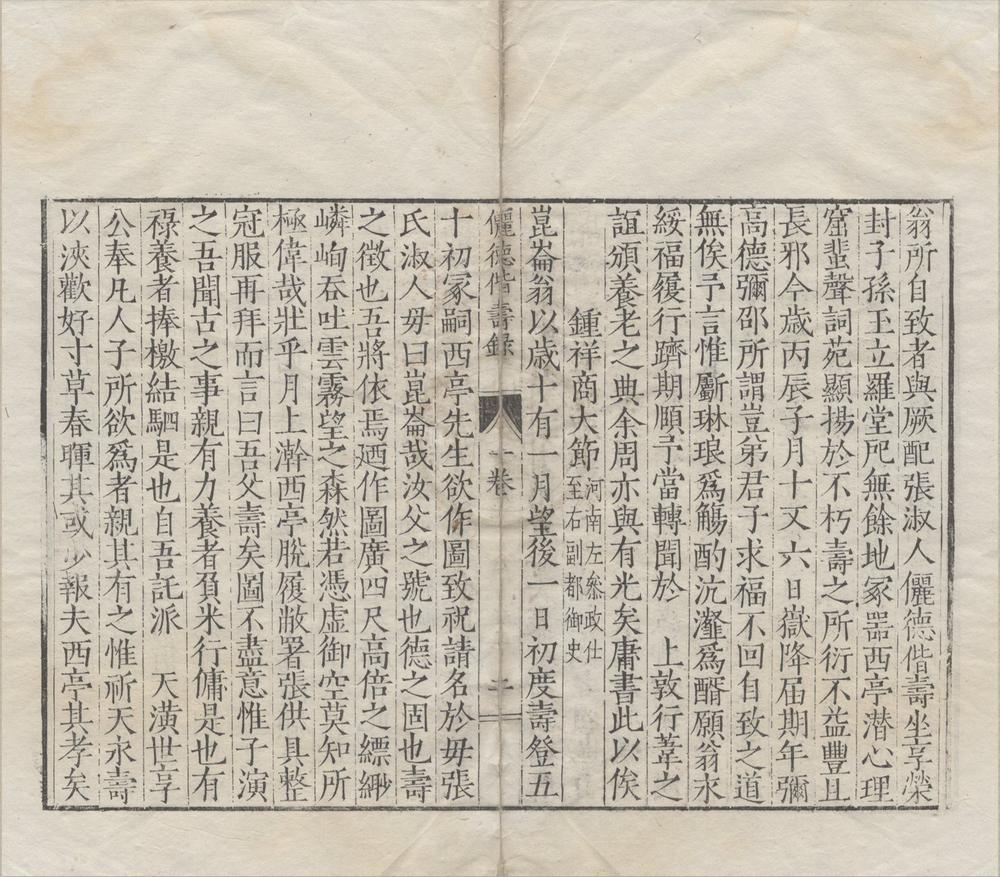 翁所自致者與厥配張淑人儷德偕壽坐享榮
封子孫玉立羅堂戺無餘地冢器西亭潛心理
窟蜚聲詞苑顯揚於不朽壽之所衍不益豐且
長邪今歲丙辰子月十又六日嶽降屆期年彌
高德彌邵所謂豈弟君子求福不回自致之道
無俟予言惟斸琳琅爲觴酌沆瀣爲醑願翁永
綏福履行躋期頤予當轉聞於　上敦行葦之
誼頒養老之典余周亦與有光矣庸書此以俟
鍾祥商大節河南左叅政仕至右副都御史
崑崙翁以歲十有一月望後一日初度壽登五
儷德偕壽錄　一卷　二
十初冢嗣西亭先生欲作圖致祝請名於毋張
氏淑人毋曰崑崙哉汝父之號也德之固也壽
之徵也吾將依焉廼作圖廣四尺高倍之縹緲
嶙峋吞吐雲霧望之森然若憑虛御空莫知所
極偉哉壯乎月上澣西亭脫履敝署張供具整
冠服再拜而言曰吾父壽矣圖不盡意惟子演
之吾聞古之事親有力養者負米行傭是也有
祿養者捧檄結駟是也自吾託派　天潢世享
公奉凡人子所欲爲者親其有之惟祈天永壽
以浹歡好寸草春暉其或少報夫西亭其孝矣